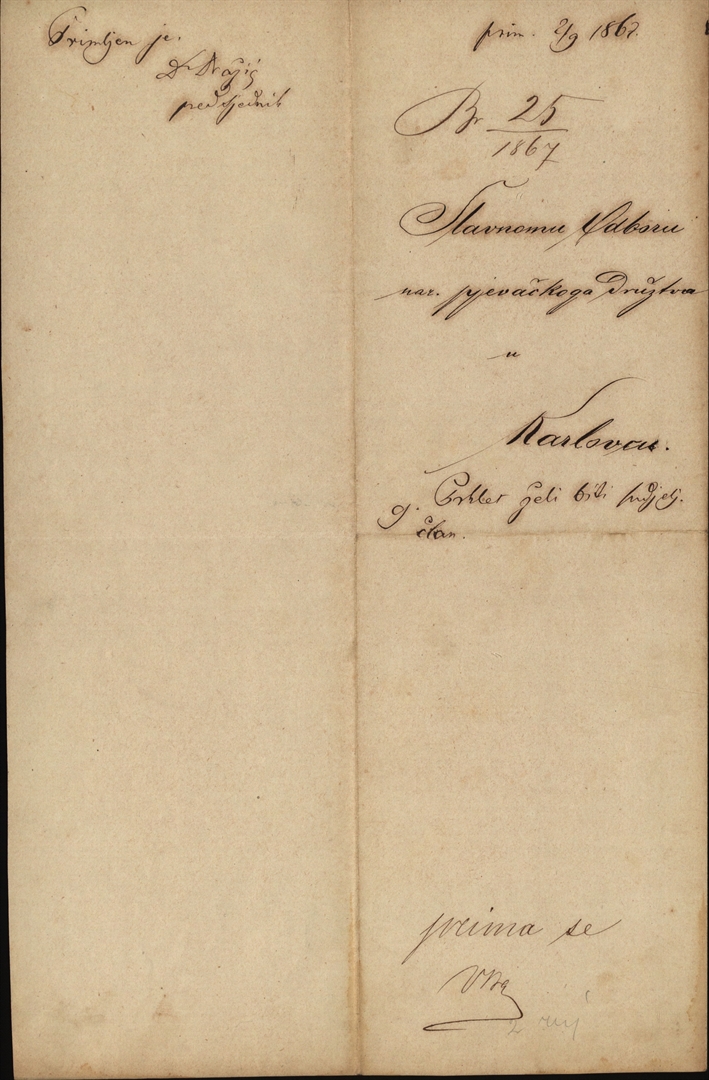 Primljen je.
Dr Dražić
predsjednik
prim. 2/9 1867.
Br 25
1867
Slavnomu Odboru
nar. pjevačkoga Družtva
u
Karlovcu.
g. želi biti
član.
prima se